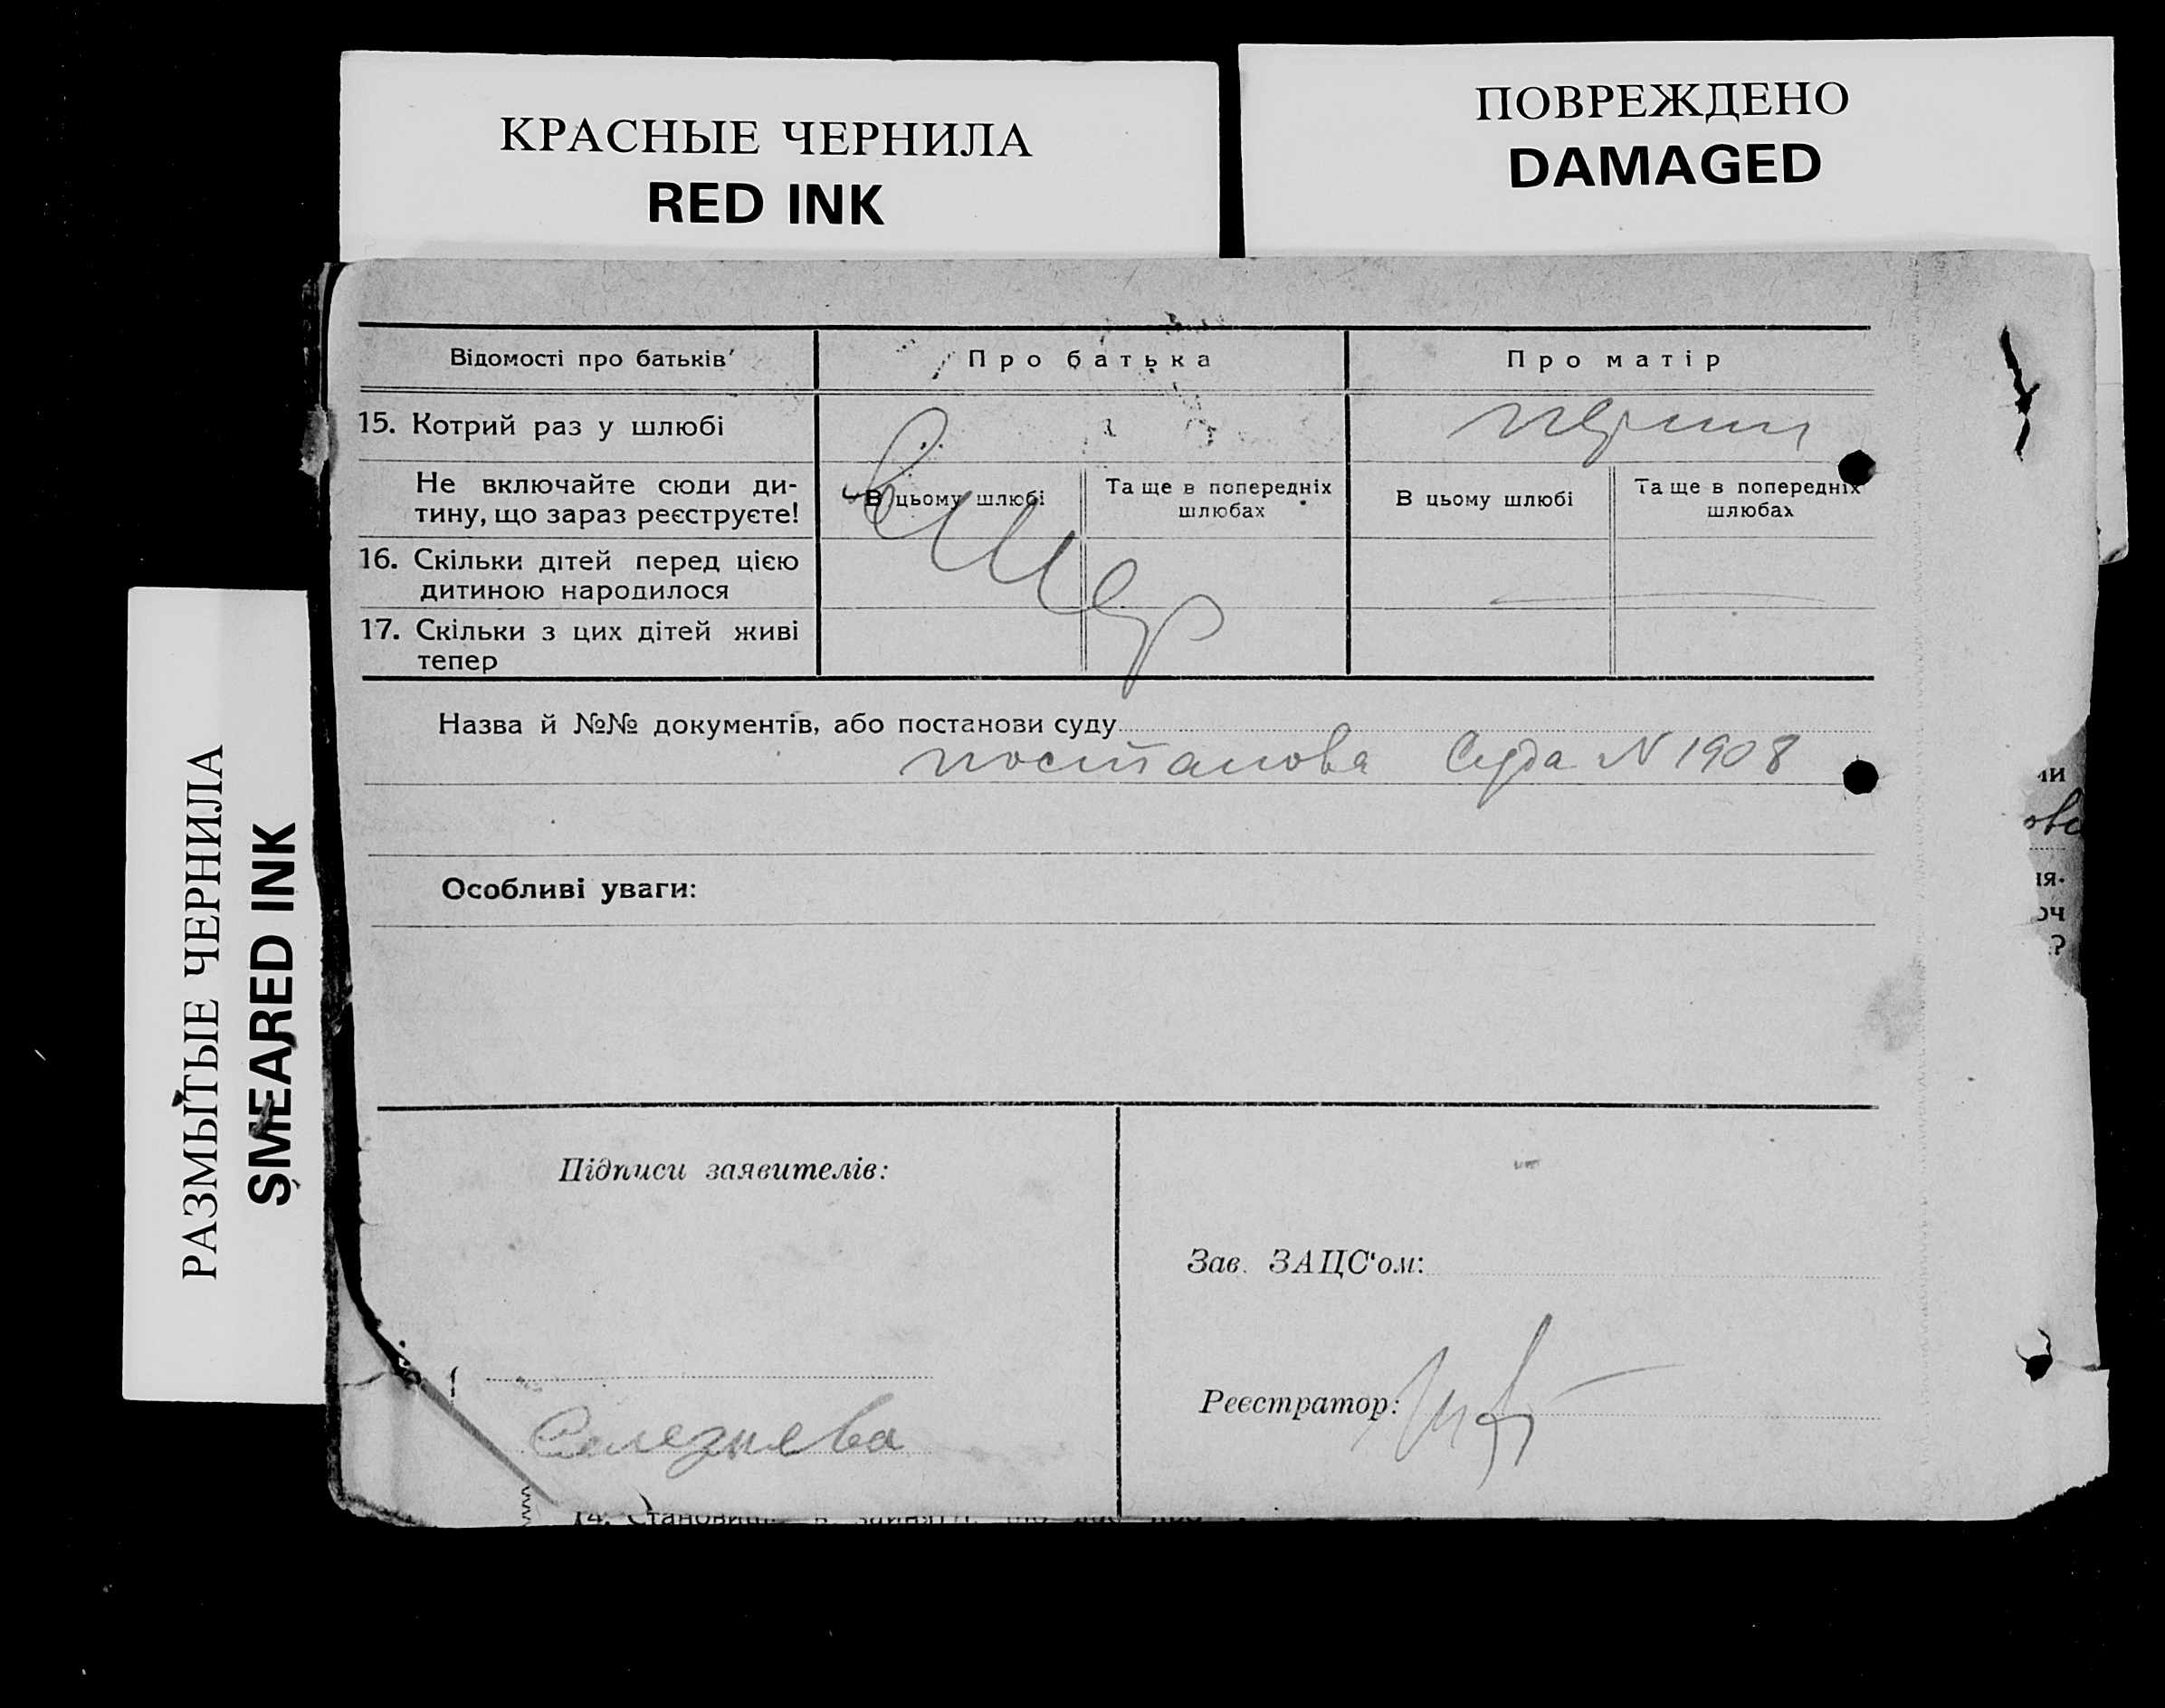 КРАСНЫЕ ЧЕРНИЛА
RED INK
ПОВРЕЖДЕНО
DAMAGED
РАЗМЫТЫЕ ЧЕРНИЛА
SMEARED INK
Відомості про батьків
Про батька
Про матір
15. Котрий раз у шлюбі
Не включайте сюди ди-
тину, що зараз реєструєте!
В цьому шлюбі
Та ще в попередніх
шлюбах
В цьому шлюбі
Та ще в попередніх
шлюбах
16. Скільки дітей перед цією
дитиною народилося
17. Скільки з цих дітей живі
тепер
Назва й №№ документів, або постанови суду
постанова Суда N 1908
Особливі уваги:
Підписи заявителів:
Селезнева
Зав. ЗАЦС'ом:
Реєстратор: